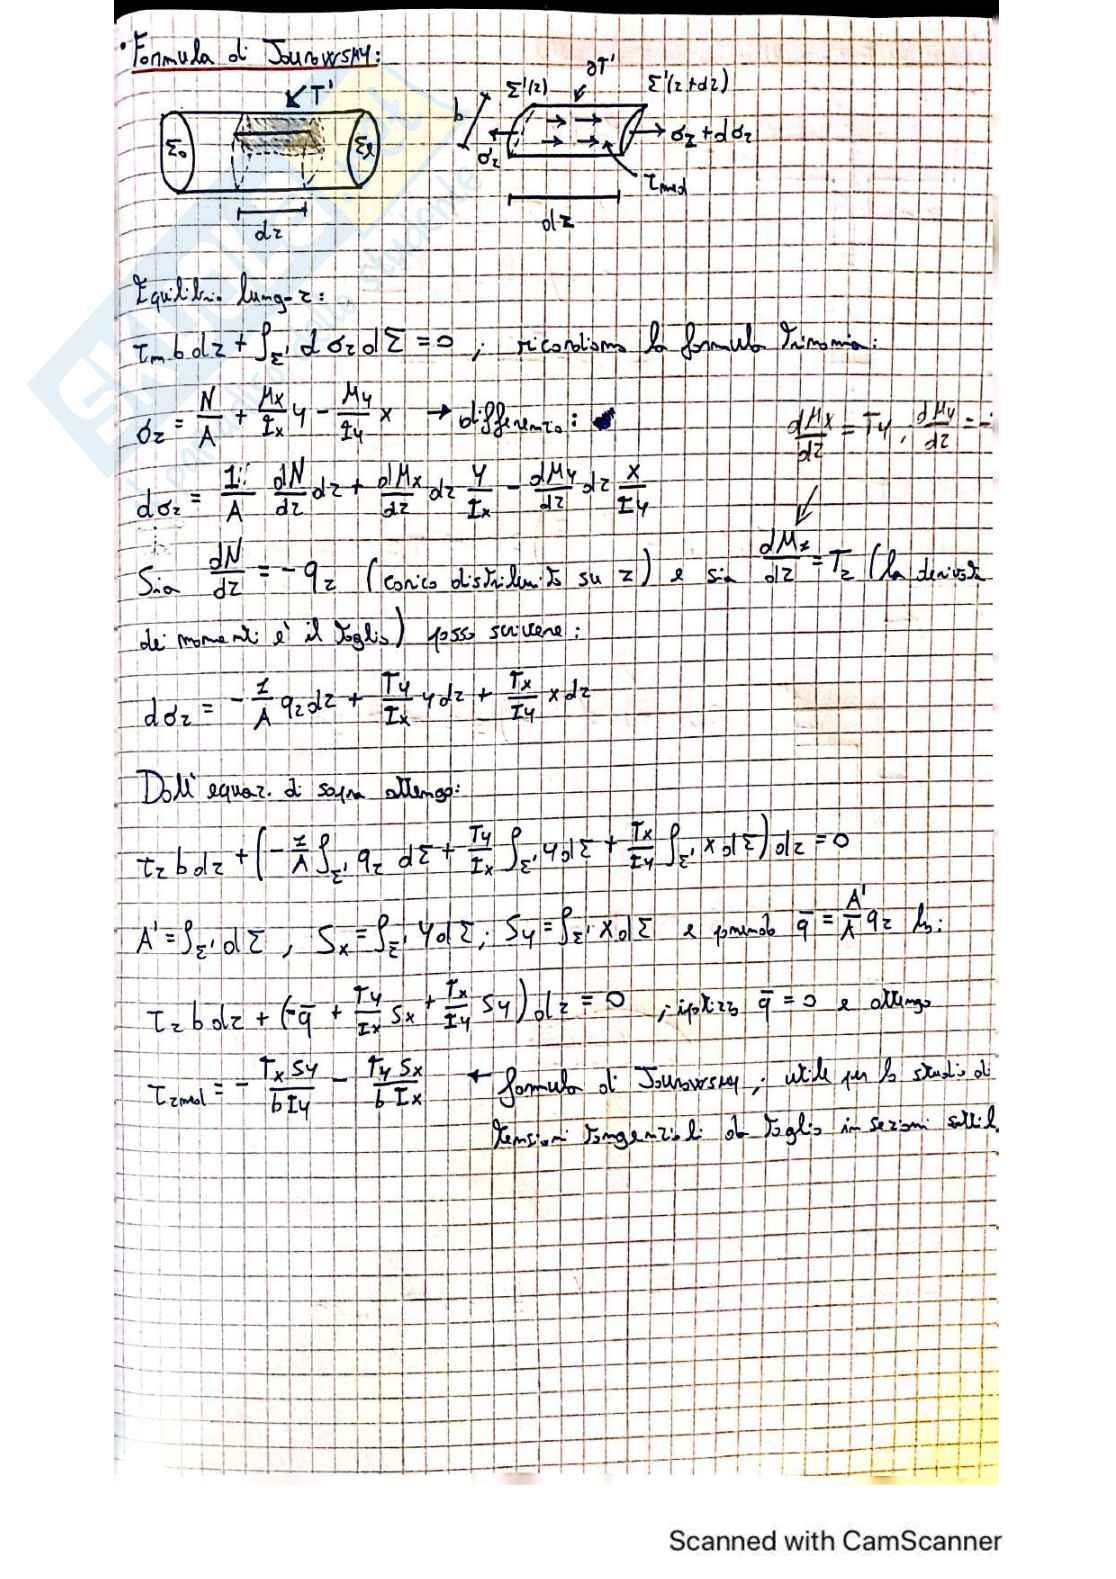 • Formula di Jourowsky:
T'
Σ₀
Σℓ
dz
b
Σ'(z)
∂T'
Σ'(z+dz)
σz
σz + dσz
τmed
dz
Equilibrio lungo z:
τm b dz + ∫Σ' dσz dΣ = 0 ; ricordiamo la formula trinomia:
σz = N/A + Mx/Ix y − My/Iy x → differenzio:
dMx/dz = Ty , dMy/dz = −
dσz = 1/A dN/dz dz + dMx/dz dz y/Ix − dMy/dz dz x/Iy
Sia dN/dz = −qz (carico distribuito su z) e sia dMz/dz = Tz (la derivata
dei momenti è il taglio) posso scrivere:
dσz = −1/A qz dz + Ty/Ix y dz + Tx/Iy x dz
Dall'equaz. di sopra ottengo:
τz b dz + (−1/A ∫Σ' qz dΣ + Ty/Ix ∫Σ' y dΣ + Tx/Iy ∫Σ' x dΣ) dz = 0
A' = ∫Σ' dΣ , Sx = ∫Σ' y dΣ ; Sy = ∫Σ' x dΣ e ponendo q̄ = A'/A qz ho:
τz b dz + (−q̄ + Ty/Ix Sx + Tx/Iy Sy) dz = 0 ; ipotizzo q̄ = 0 e ottengo
τzmed = − Tx Sy / b Iy − Ty Sx / b Ix ← formula di Jourowsky, utile per lo studio di
tensioni tangenziali da taglio in sezioni sottil.
Scanned with CamScanner